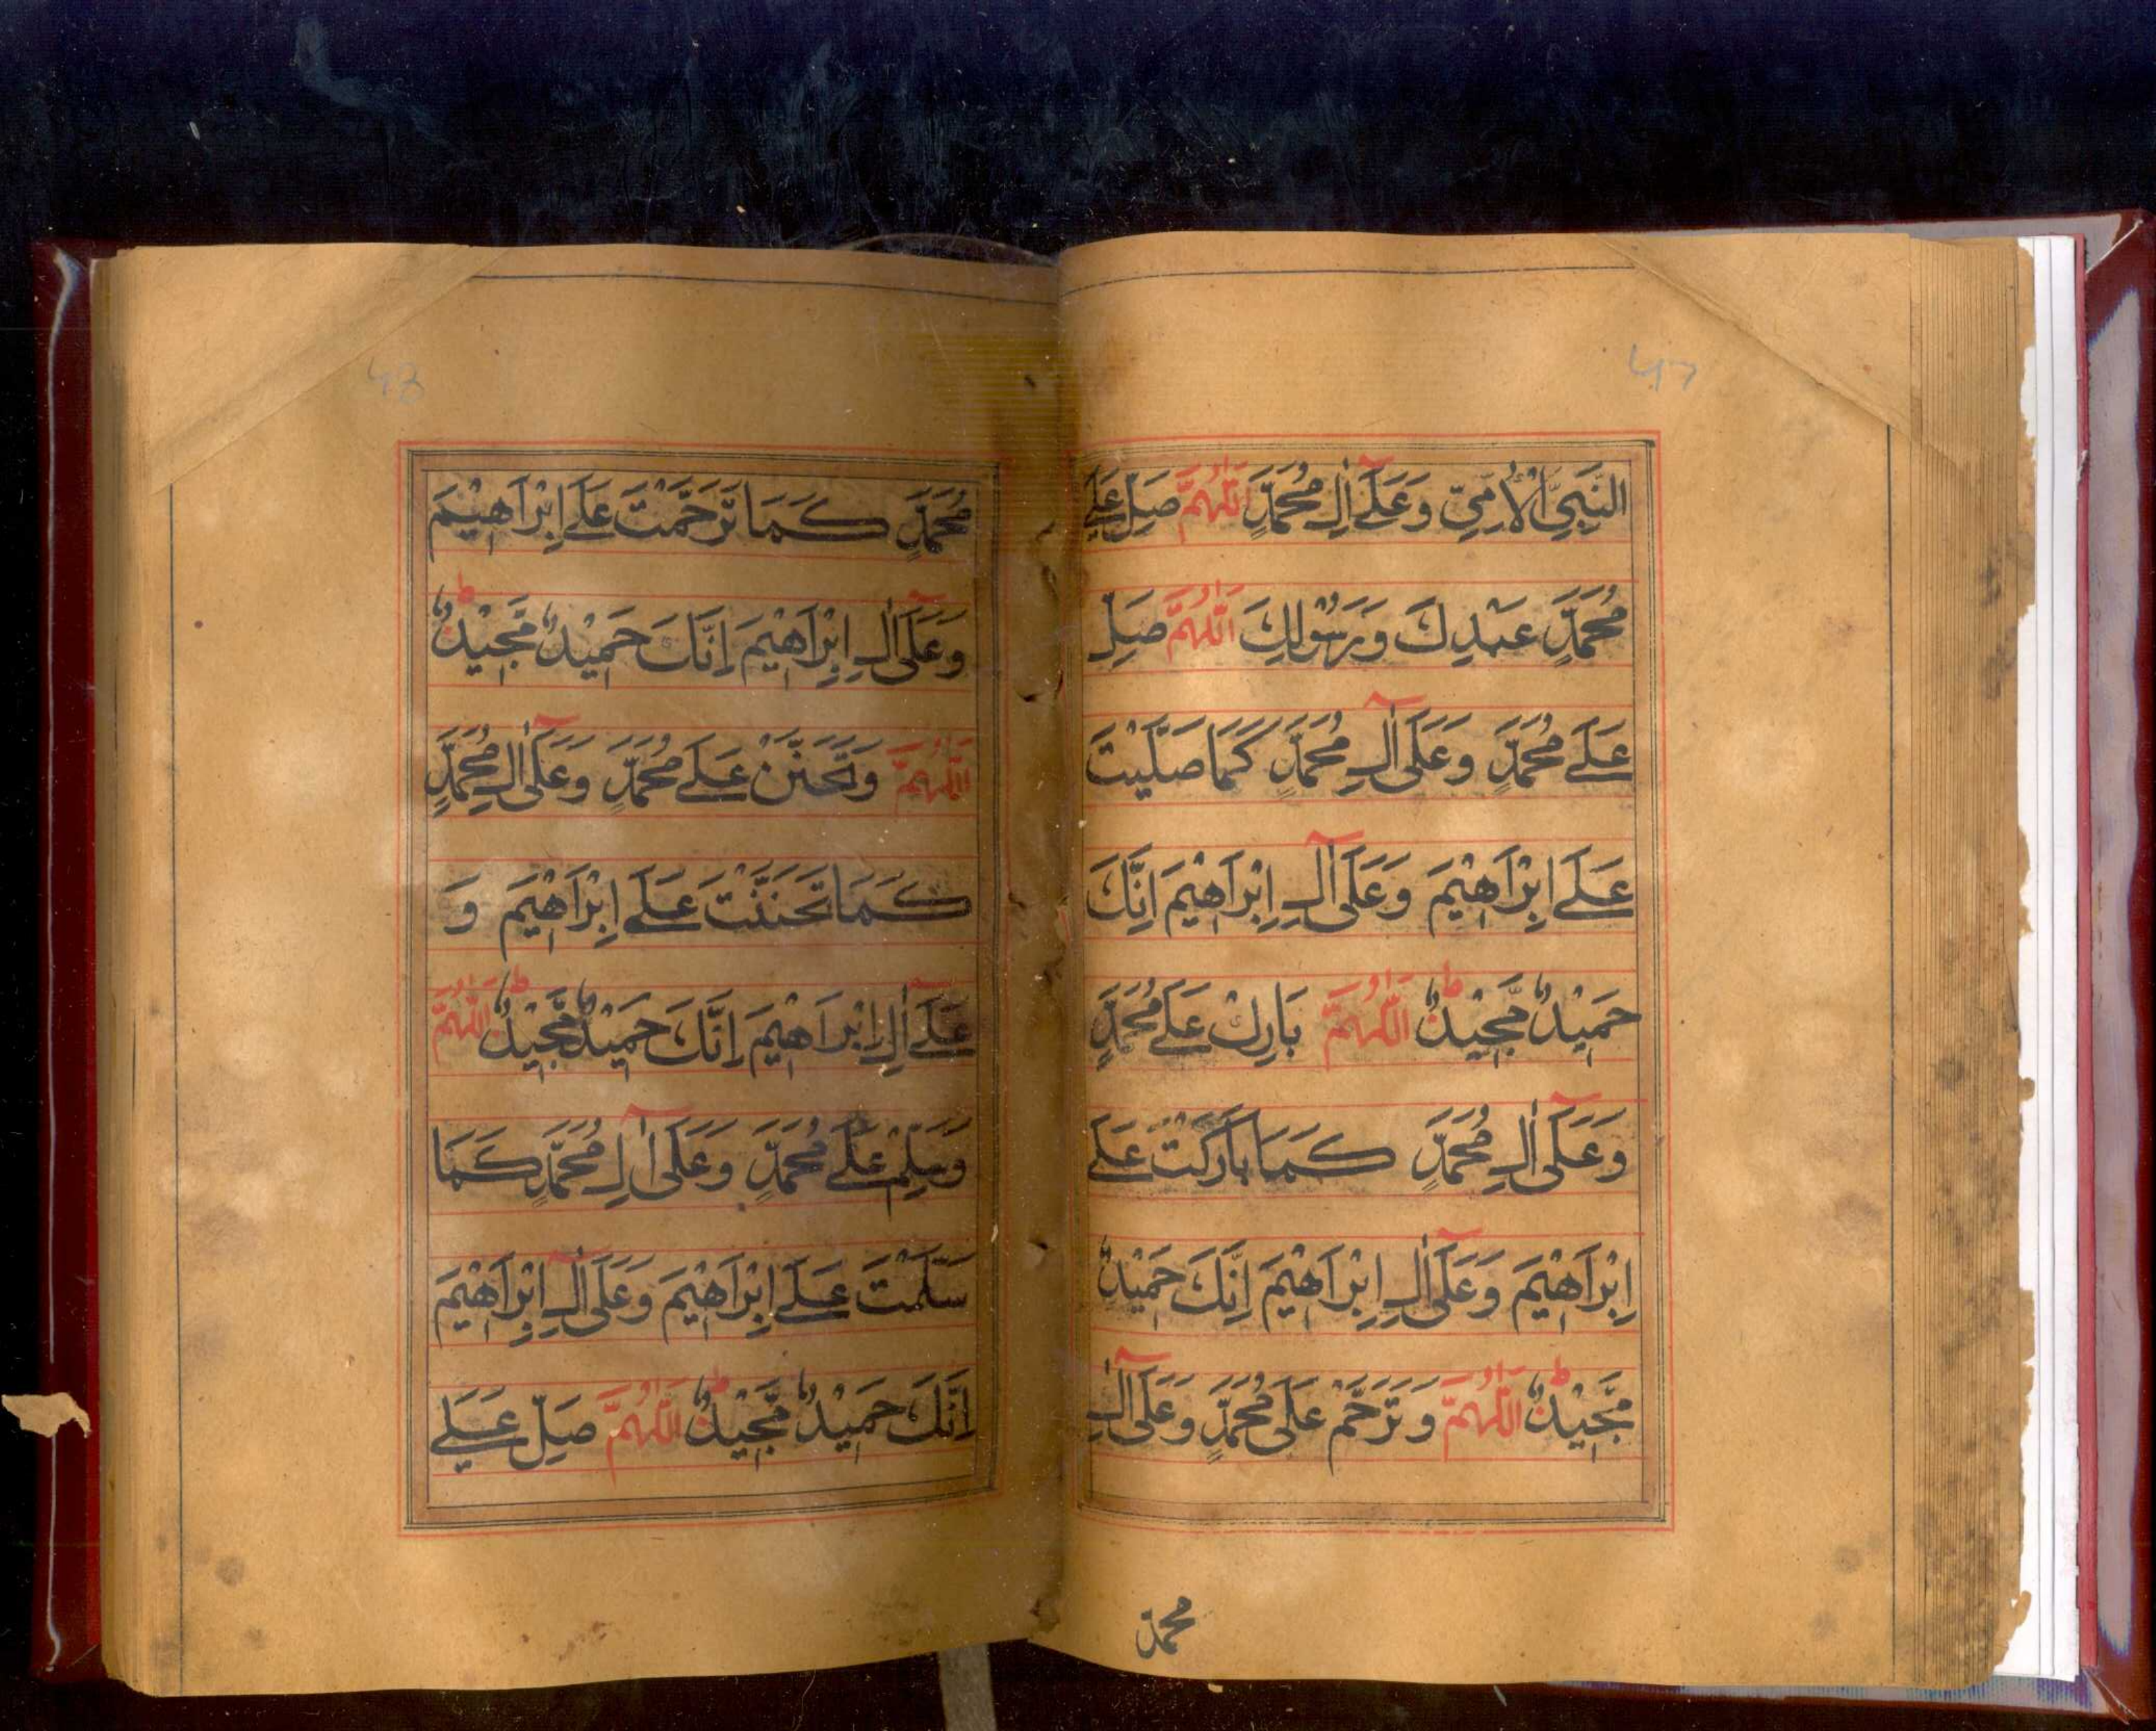 47
النَّبِيِّ الْأُمِّيِّ وَعَلَىٰٓ اٰلِ مُحَمَّدٍ اَللّٰهُمَّ صَلِّ عَلَے
مُحَمَّدٍ عَبْدِكَ وَرَسُوْلِكَ اَللّٰهُمَّ صَلِّ
عَلَے مُحَمَّدٍ وَعَلَىٰٓ اٰلِ مُحَمَّدٍ كَمَا صَلَّيْتَ
عَلَے اِبْرَاهِيْمَ وَعَلَىٰٓ اٰلِ اِبْرَاهِيْمَ اِنَّكَ
حَمِيْدٌ مَّجِيْدٌ ط اَللّٰهُمَّ بَارِكْ عَلَے مُحَمَّدٍ
وَعَلَىٰٓ اٰلِ مُحَمَّدٍ كَمَا بَارَكْتَ عَلَے
اِبْرَاهِيْمَ وَعَلَىٰٓ اٰلِ اِبْرَاهِيْمَ اِنَّكَ حَمِيْدٌ
مَّجِيْدٌ ط اَللّٰهُمَّ وَ تَرَحَّمْ عَلَى مُحَمَّدٍ وَعَلَىٰٓ اٰلِ
محمد
48
مُحَمَّدٍ كَمَا تَرَحَّمْتَ عَلَے اِبْرَاهِيْمَ
وَعَلَىٰٓ اٰلِ اِبْرَاهِيْمَ اِنَّكَ حَمِيْدٌ مَّجِيْدٌ ط
اَللّٰهُمَّ وَتَحَنَّنْ عَلَے مُحَمَّدٍ وَعَلَىٰٓ اٰلِ مُحَمَّدٍ
كَمَا تَحَنَّنْتَ عَلَے اِبْرَاهِيْمَ وَ
عَلَےٓ اٰلِ اِبْرَاهِيْمَ اِنَّكَ حَمِيْدٌ مَّجِيْدٌ ط اَللّٰهُمَّ
وَسَلِّمْ عَلَے مُحَمَّدٍ وَعَلَىٰٓ اٰلِ مُحَمَّدٍ كَمَا
سَلَّمْتَ عَلَے اِبْرَاهِيْمَ وَعَلَىٰٓ اٰلِ اِبْرَاهِيْمَ
اِنَّكَ حَمِيْدٌ مَّجِيْدٌ ط اَللّٰهُمَّ صَلِّ عَلَے